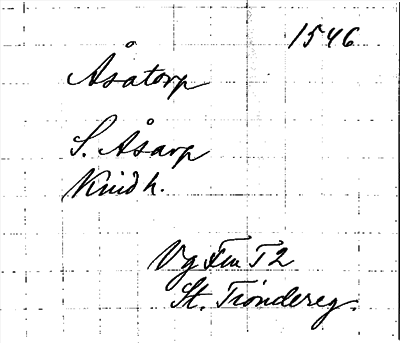 1546
Åsatorp
S. Åsarp
Kindh.
Vg Fru T2
St. Tiondereg.